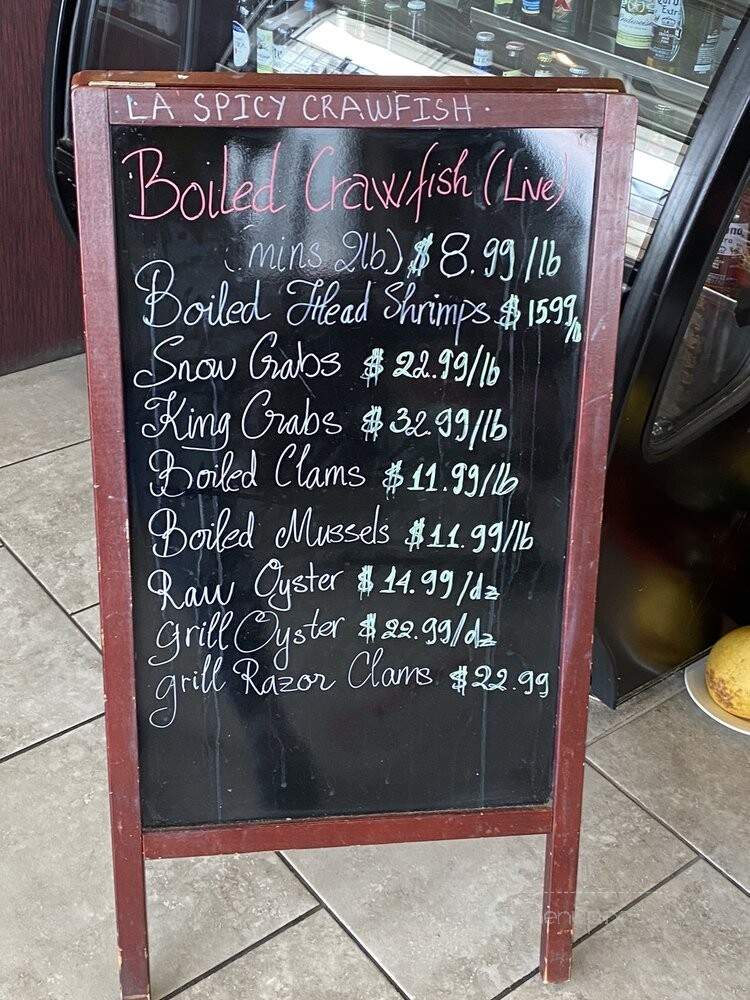 LA SPICY CRAWFISH.
Boiled Crawfish (Live)
(mins 2lb) $8.99/lb
Boiled Head Shrimps $15.99/lb
Snow Crabs $22.99/lb
King Crabs $32.99/lb
Boiled Clams $11.99/lb
Boiled Mussels $11.99/lb
Raw Oyster $14.99/dz
grill Oyster $22.99/dz
grill Razor Clams $22.99